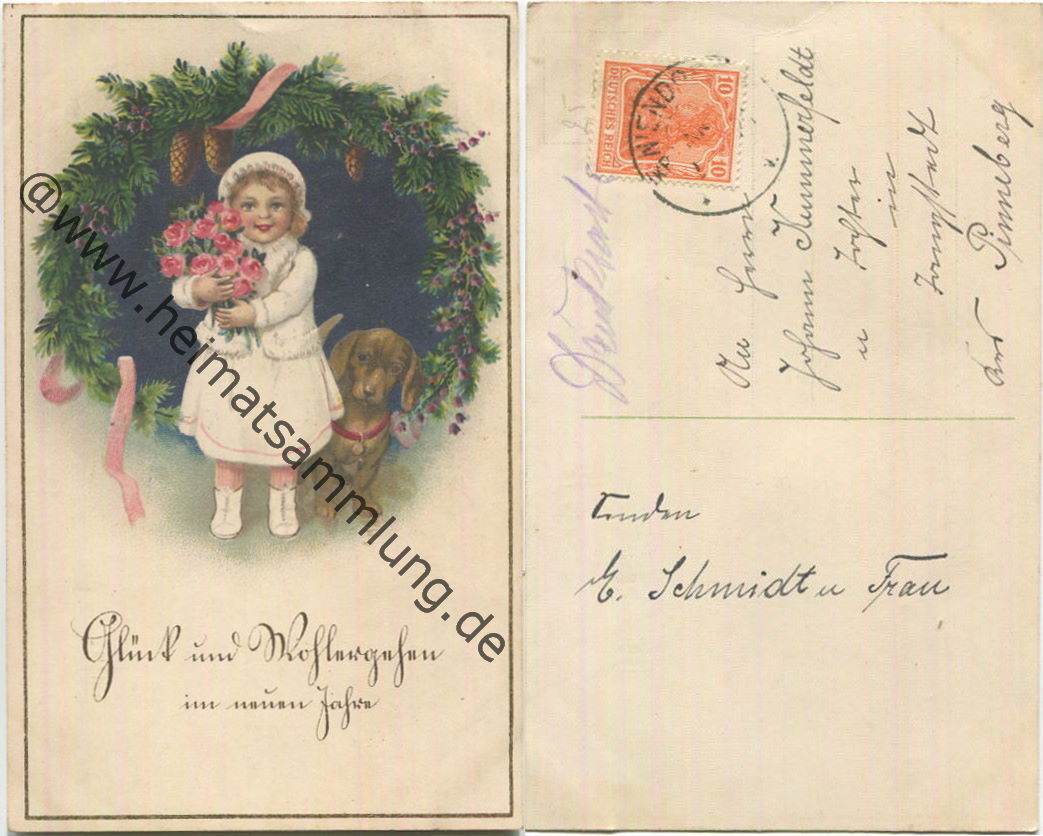 Glück und Wohlergehen
im neuen Jahre
@www.heimatsammlung.de
10 10
DEUTSCHES REICH
25
Drucksache
An Herrn
Johann Kummerfeldt
u Tochter
in
Krs Pinneberg
senden
E. Schmidt u Frau